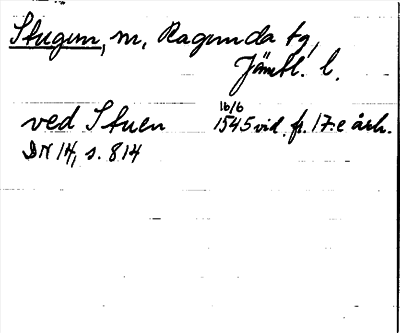 Stugun, m, Ragunda tg,
Jämtl. l.
16/6
ved Stuen 1545 vid. fr. 17:e årh.
DN 14, s. 814